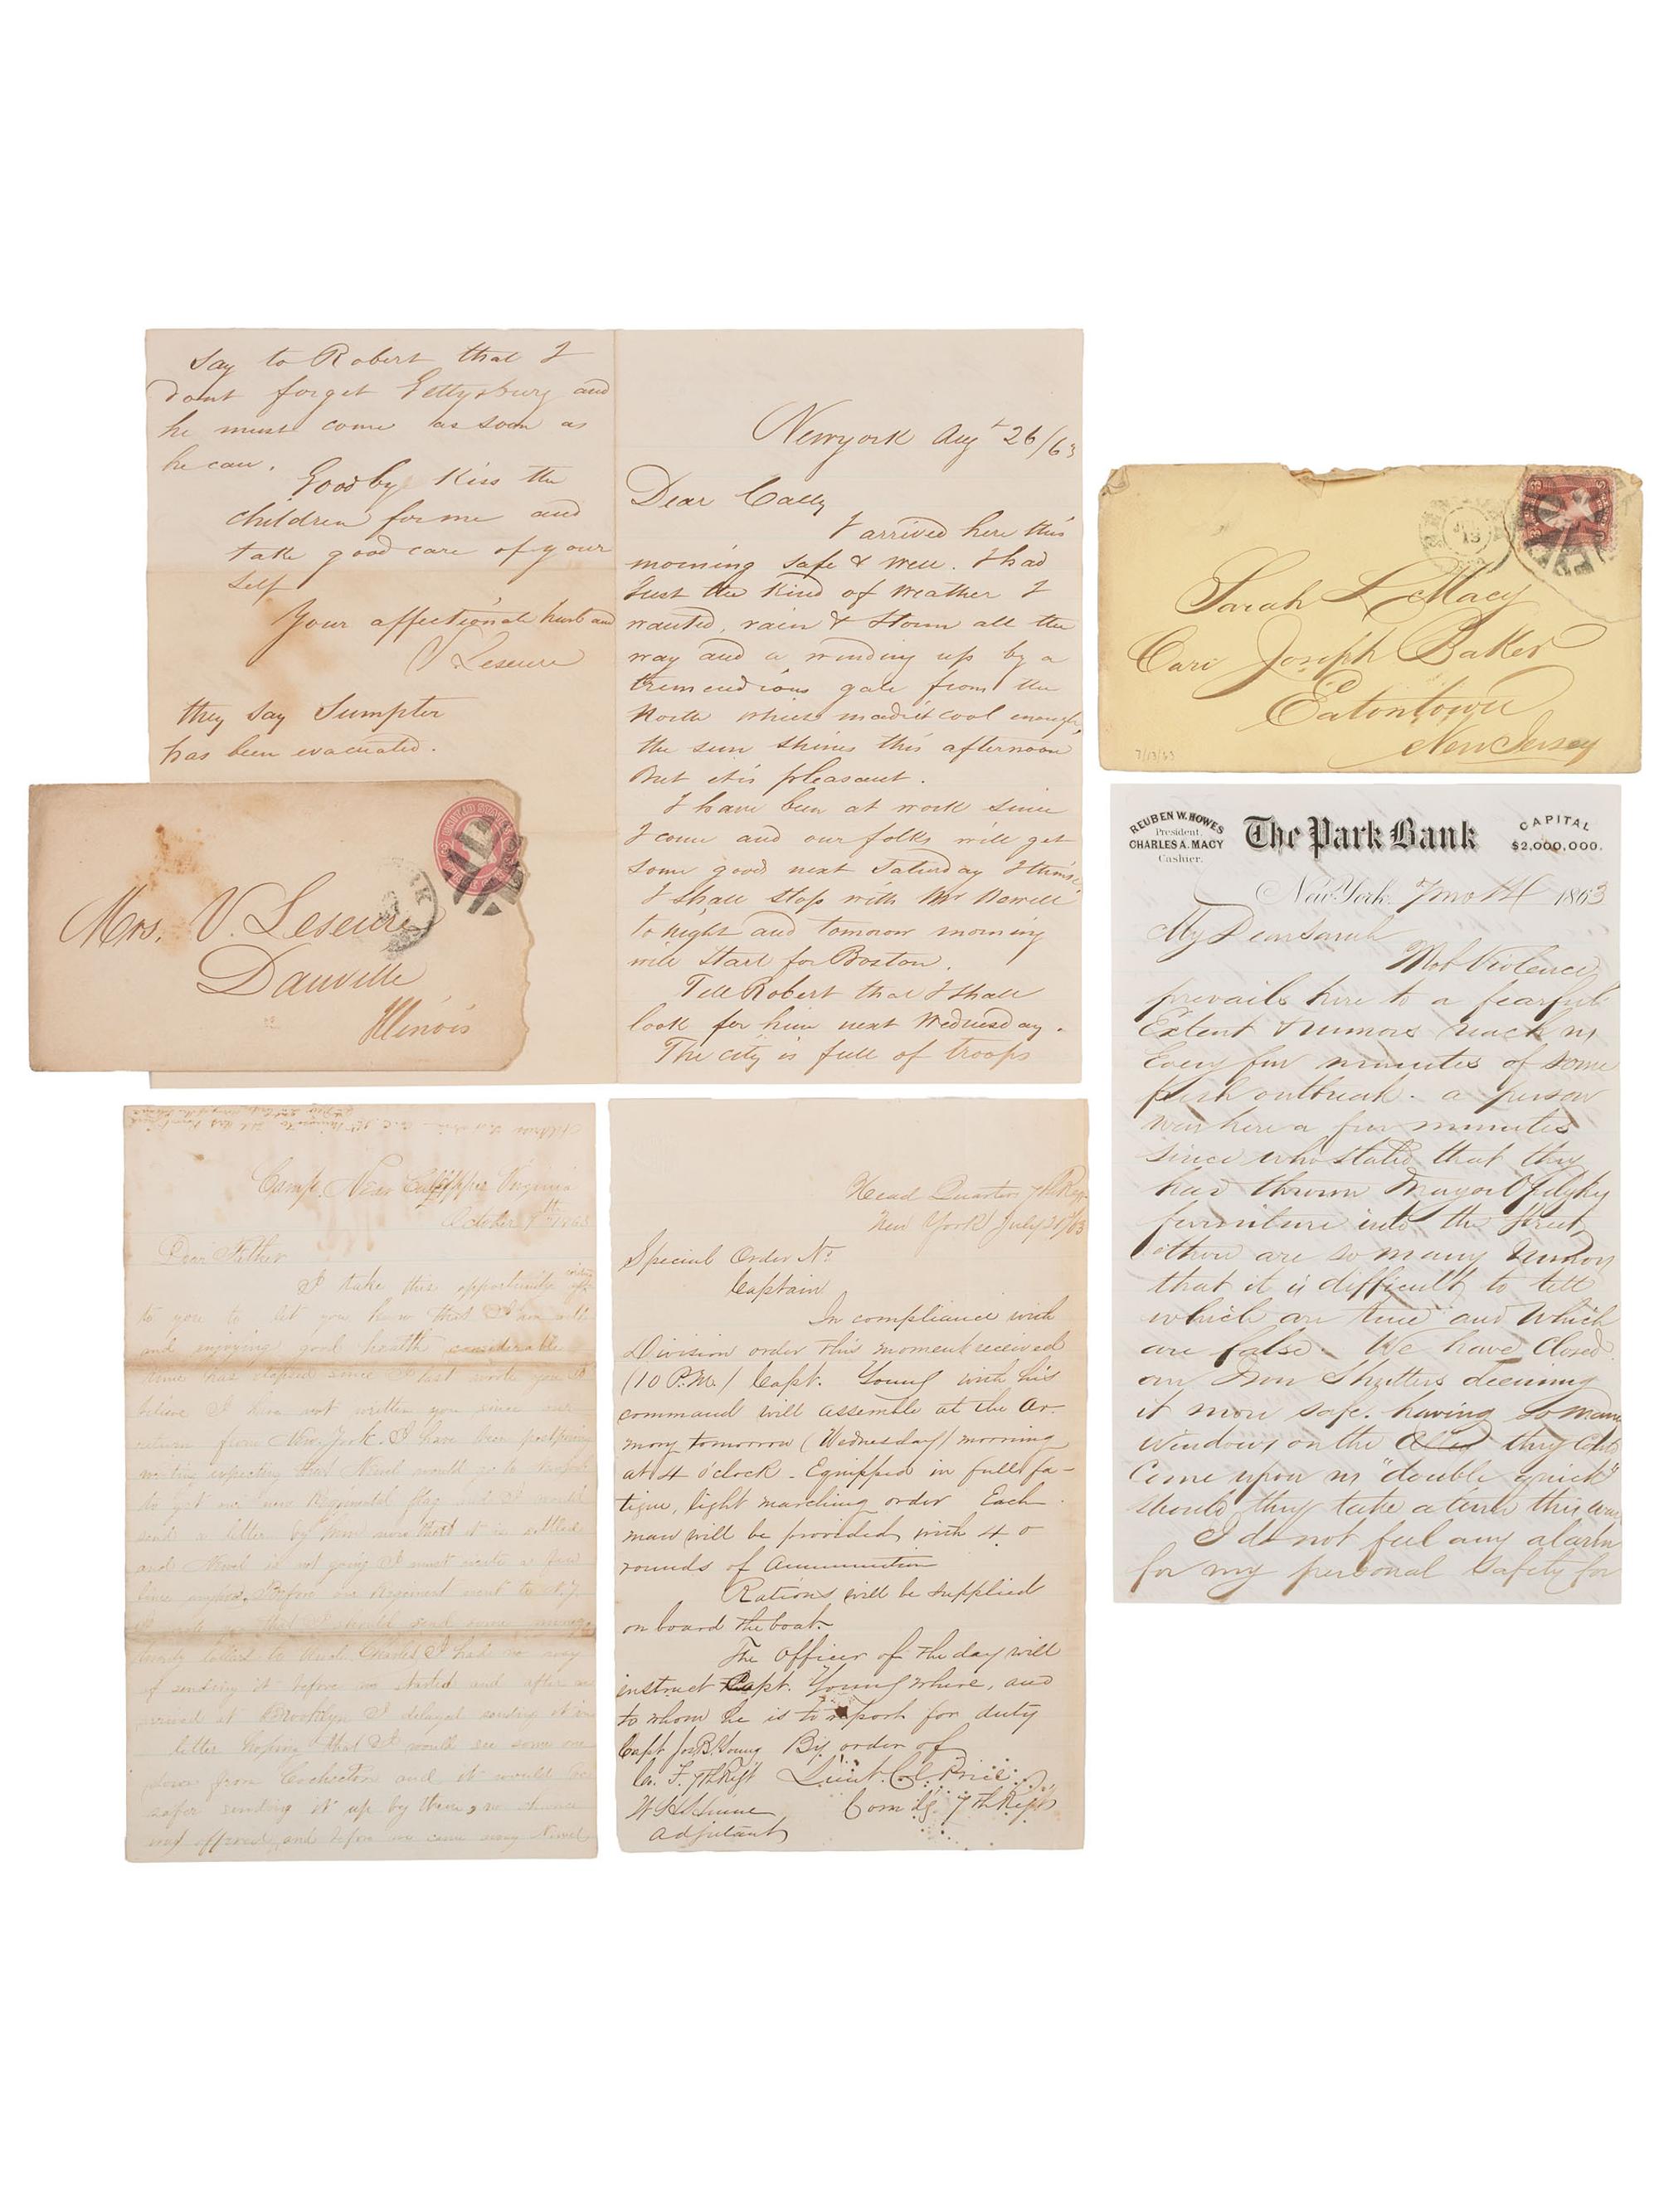 Say to Robert that I
dont forget Gettysburg and
he must come as soon as
he can.
Good by Kiss the
children for me and
take good care of your
self
Your affectionate husband
V Leseure
they say Sumpter
has been evacuated.
Newyork Augt 26/63
Dear Cally
I arrived here this
morning safe & well. I had
Just the Kind of weather I
wanted, rain & storm all the
way and a winding up by a
tremendious gale from the
North which made it cool enough,
the sun shines this afternoon
But it is pleasant.
I have been at work since
I come and our folks will get
some goods next Saturday I think
I shall stop with Mr
to night and tomorow morning
will Start for Boston.
Tell Robert that I shall
look for him next Wednesday.
The city is full of troops
Mrs. V. Leseure
Danville
Illinois
Sarah L Macy
Care Joseph Baker
Eatontown
New Jersey
7/13/63
REUBEN W. HOWES
President,
CHARLES A. MACY
Cashier.
The Park Bank
CAPITAL
$2,000,000.
New York, 7 mo 14 1863
My Dear Sarah
Mob Violence
prevails here to a fearful
Extent & rumors reach us
Every few minutes of some
fresh outbreak. a person
was here a few minutes
since who stated that they
had thrown Mayor Opdyke
furniture into the street,
others are so many rumors
that it is difficult to tell
which are true and which
are false. We have Closed
our Iron Shutters deeming
it more safe. having so many
windows on the they could
Come upon us "double quick"
should they take a turn this way
I do not feel any alarm
for my personal safety for
Camp Near Culpepper Virginia
October 7th 1863
Dear Father
I take this opportunity
to you to let you know that I am well
and enjoying good health considerable
time has elapsed since I last wrote you I
believe I have not written you since our
return from New York. I have been postponing
writing expecting that Newel would go to
to get our new Regimental flag and I would
send a letter by him now that it is settled
and Newel is not going I must write a few
lines anyhow. Before our Regiment went to N.Y.
I wrote that I should send some money
twenty dollars to Uncle Charles I had no way
of sending it before we started and after we
arrived at Brooklyn I delayed sending it in
letter hoping that I would see some one
down from Cochecton and it would be
safer sending it up by them, no chance
was offered and before we came away Newel
Head Quarters 7th Reg.
New York July 21st/63
Special Order No.
Captain
In compliance with
Division order this moment received
(10 P.M.) Capt. Young with his
command will assemble at the Ar-
mory tomorrow (Wednesday) morning
at 4 o'clock. Equipped in full fa-
tigue, light marching order Each
man will be provided with 40
rounds of Ammunition
Rations will be supplied
on board the boat.
The Officer of the day will
instruct Capt. Young where, and
to whom he is to report for duty
Capt Jos B. Young By order of
Co. F. 7th Regt Lieut. Col. Price
W H Comdg. 7th Regt
Adjutant